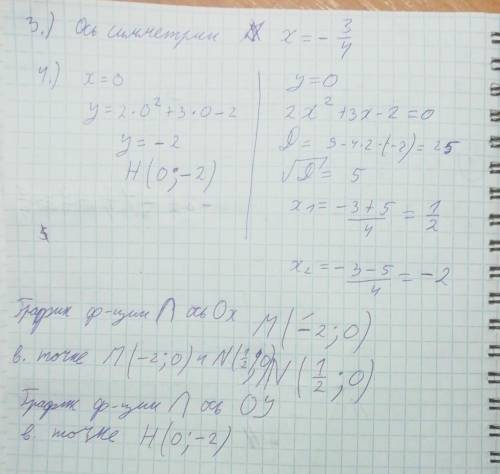 3.) Ось симметрии x = -3/4
4.) x=0
y=2·0²+3·0-2
y=-2
H(0;-2)
y=0
2x²+3x-2=0
D= 9-4·2·(-2)=25
√D= 5
x1= -3+5/4 = 1/2
x2= -3-5/4 = -2
График ф-ции ∩ ось Ox
M(-2;0)
в. точке M(-2;0) и N(1/2;0)
N(1/2;0)
График ф-ции ∩ ось OY
в точке H(0;-2)